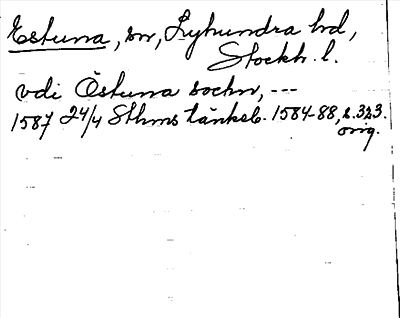 Estuna, sn, Lyhundra hd,
Stockh. l.
vdi Östuna sochn, ---
1587 24/4 Sthms tänkeb. 1584-88, s. 323.
orig.